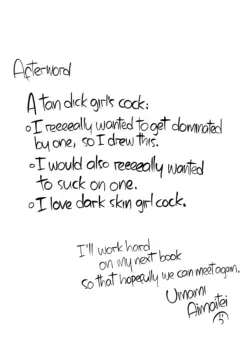 Afterword
A tan dick girl's cock:
• I reeeeally wanted to get dominated
by one, so I drew this.
• I would also reeeeally wanted
to suck on one.
• I love dark skin girl cock.
I'll work hard
on my next book
so that hopefully we can meet again.
Umami
Aimaitei